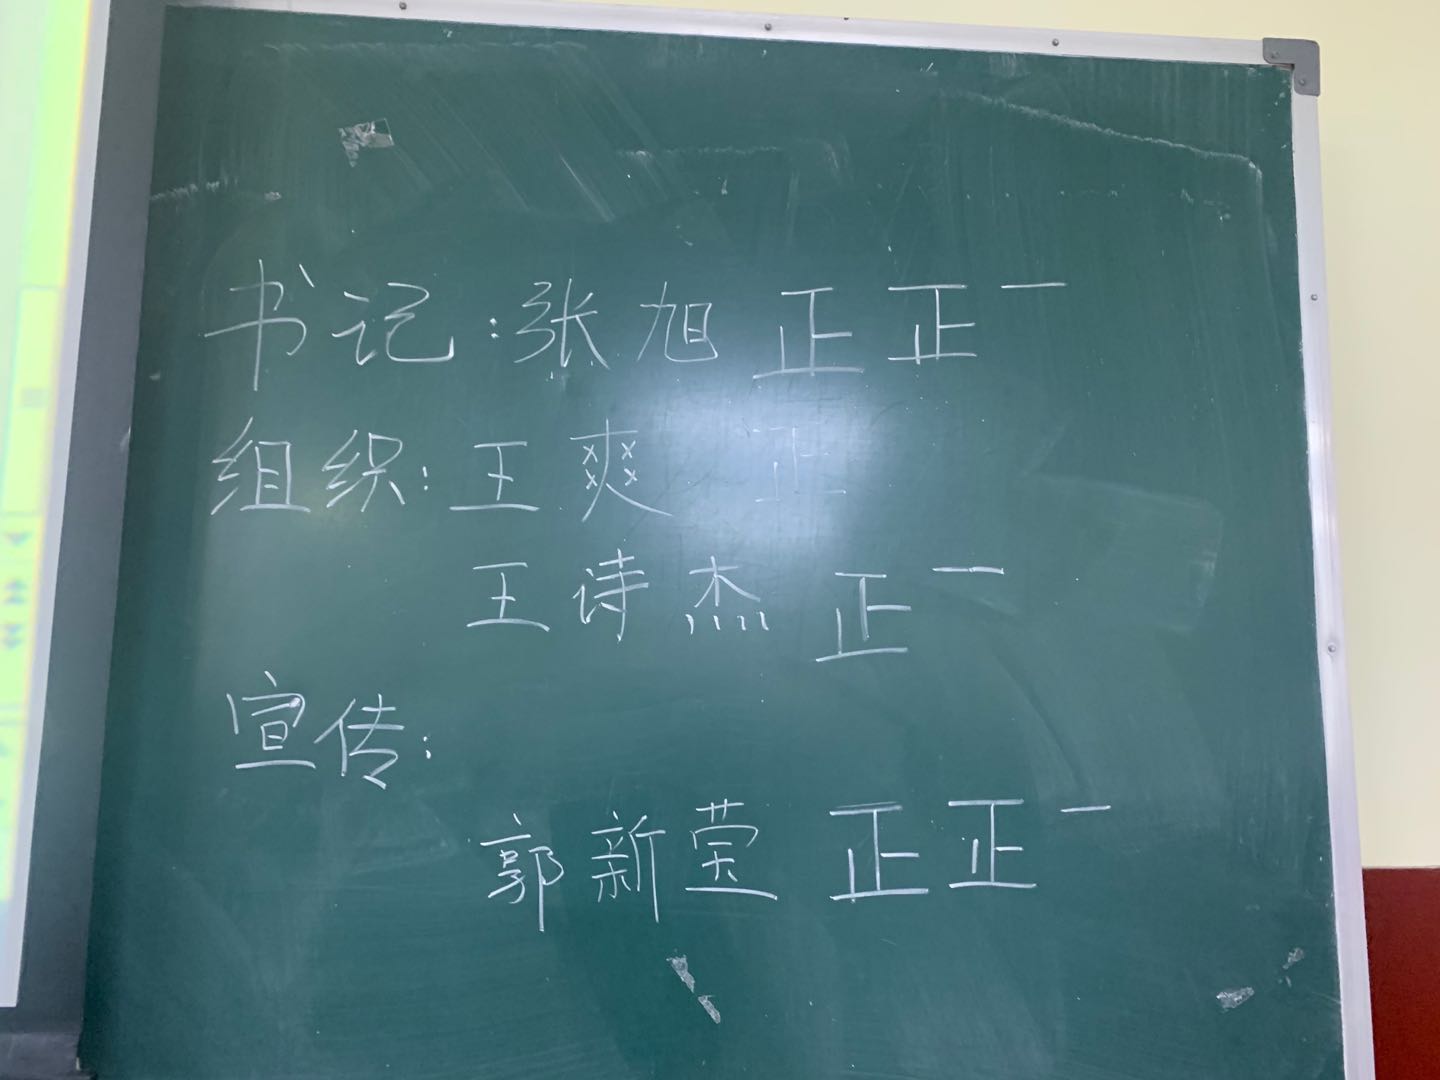 书记:张旭 正正一
组织:王爽 正
王诗杰 正一
宣传:
郭新荣 正正一